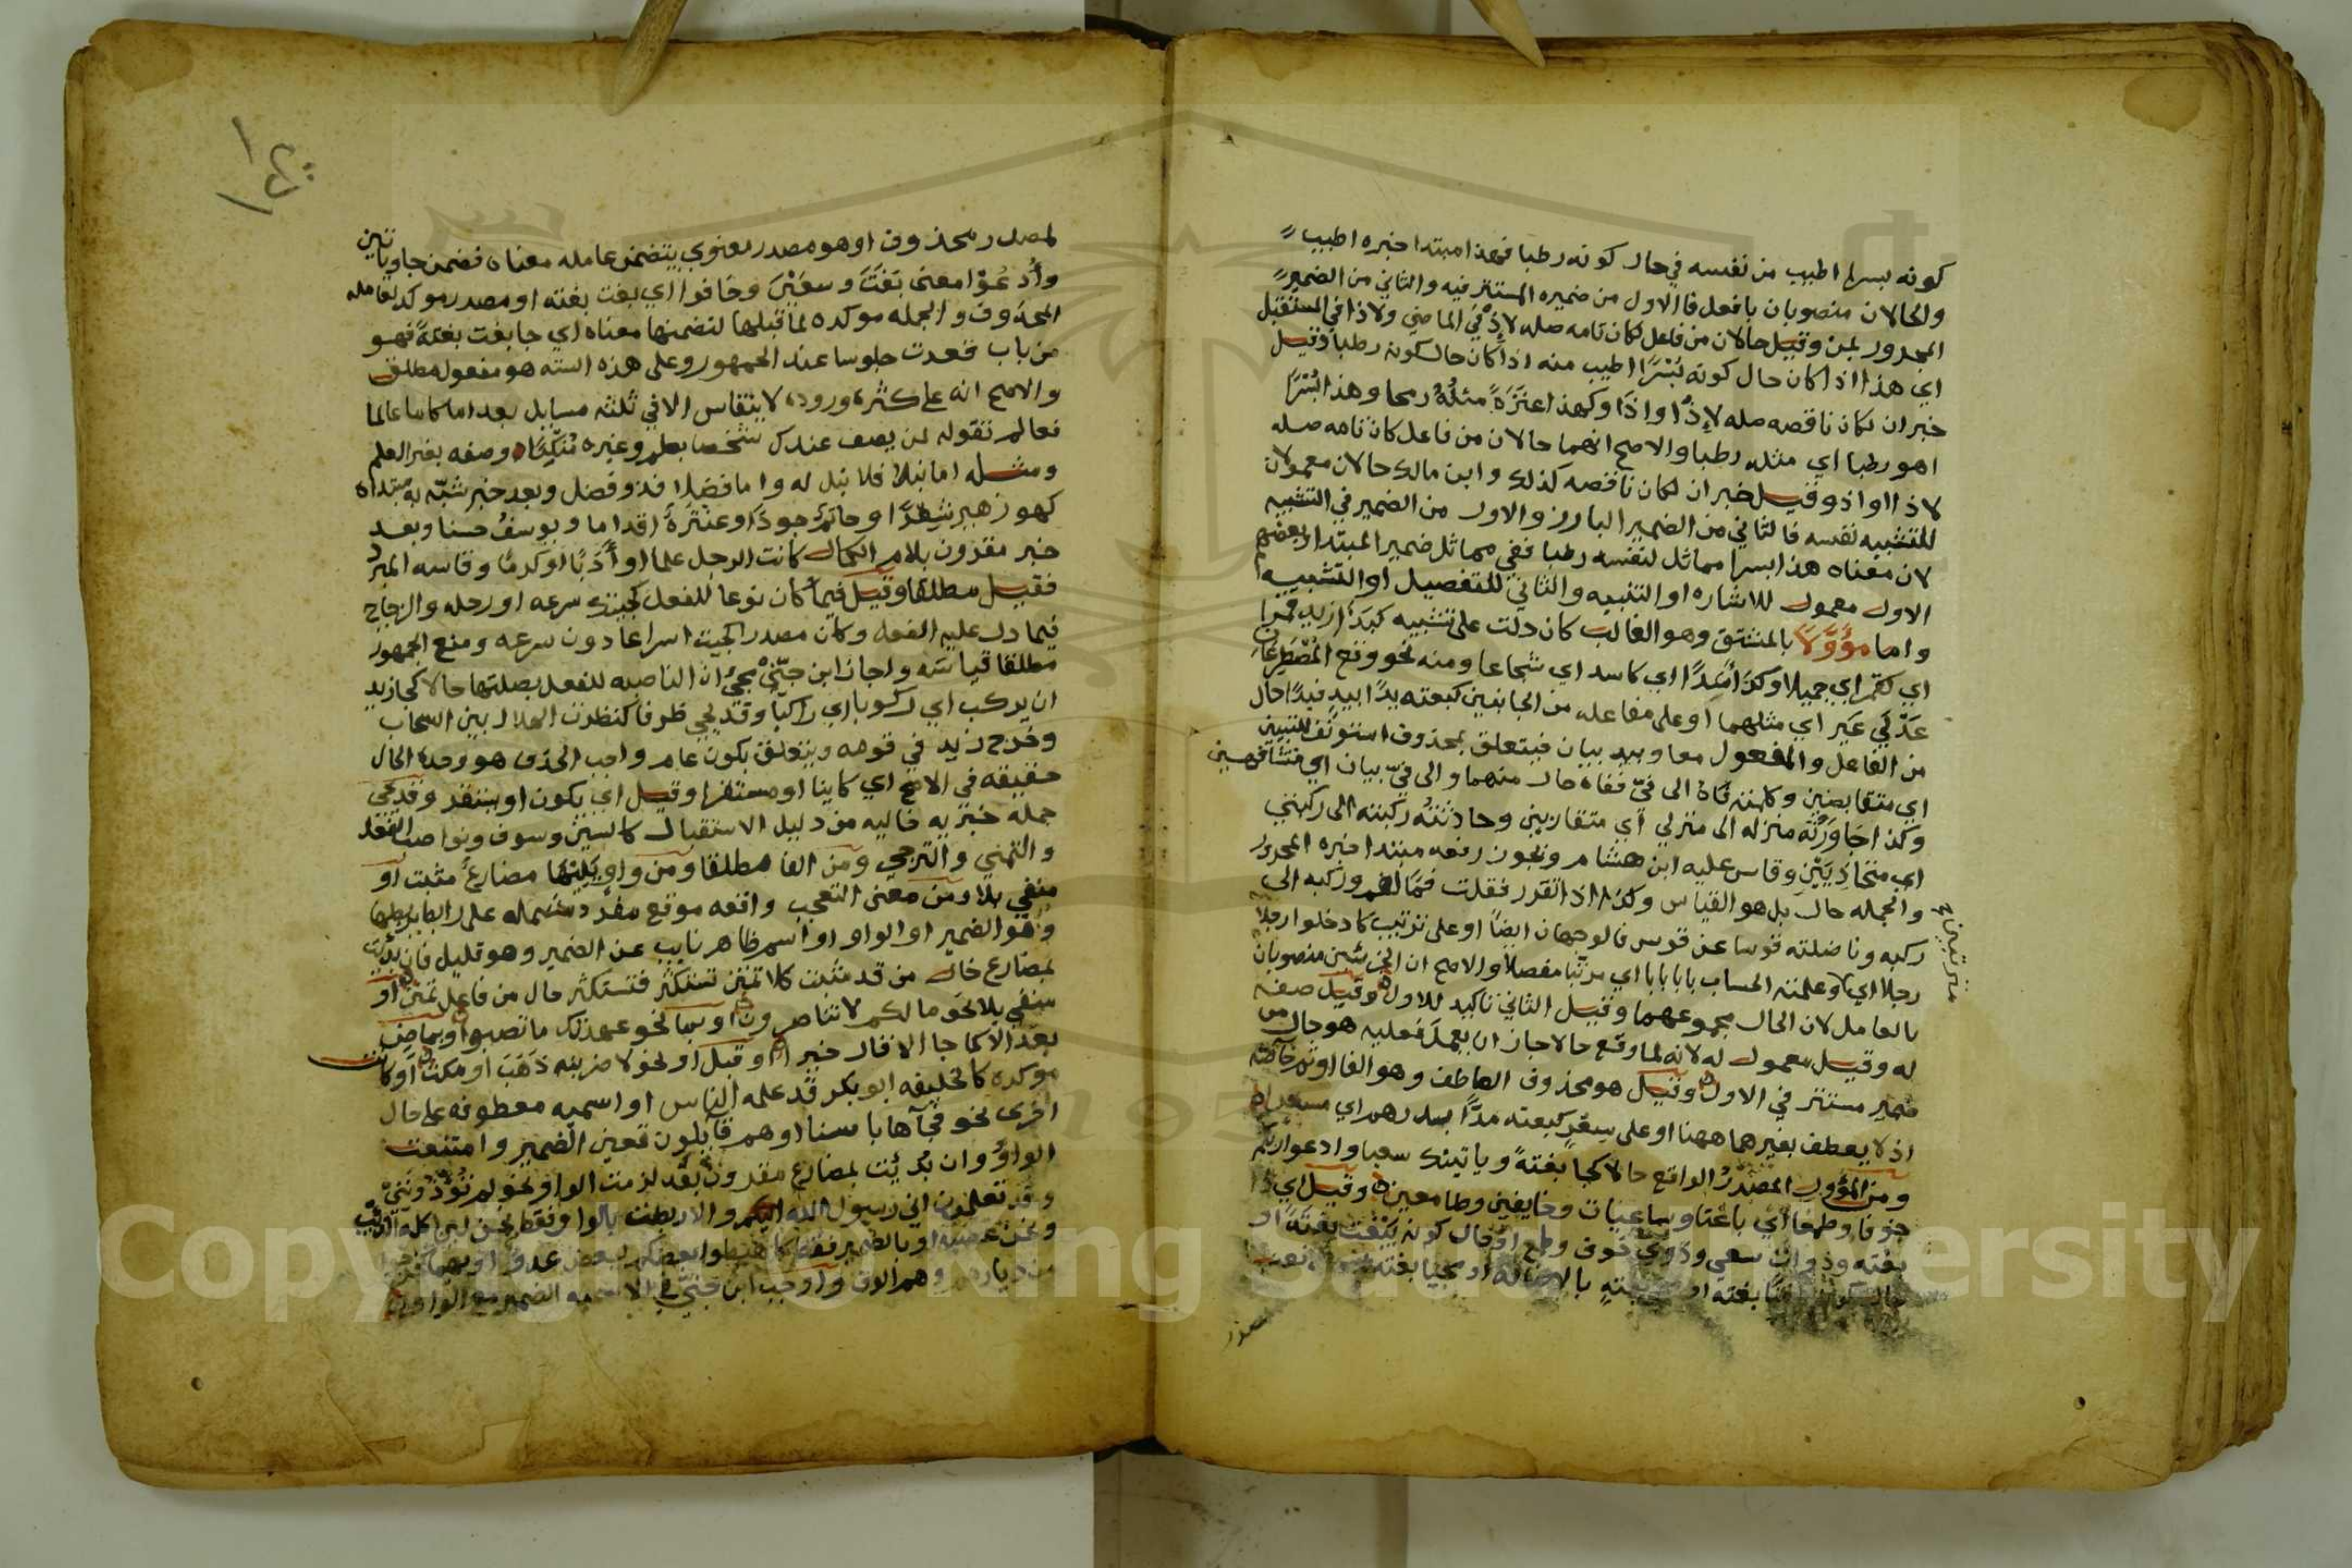 كونه بسرا اطيب من نفسه في حال كونه رطبا فهذا مبتدا خبره اطيب
والحالان منصوبان بافعل فالاول من ضميره المستتر فيه والثاني من الضمير
المجرور بمن وقيل حالان من فاعل لكان تامه صله لاذ في الماضي ولاذا في المستقبل
اي هذا اذا كان حال كونه بُسْرًا اطيب منه اذا كان حال كونه رطبا وقيل
خبران لكان ناقصه صله لاذ او اذا وكهذا عنترةً مثلُهُ رمحا وهذا بُسْرًا
اهو رطبا اي مثله رطبا والاصح انهما حالان من فاعل كان تامه صله
لاذا او اذ وقيل خبران لكان ناقصه كذلك وابن مالك حالان معمولان
للتشبيه نفسه فالثاني من الضمير البارز والاول من الضمير في التشبيه
لان معناه هذا بسرا مماثل لنفسه رطبا ففي مماثل ضمير المبتدا وبعضهم
الاول معمول للاشاره او التنبيه والثاني للتفصيل او التشبيه
واما مؤوَّلاً بالمشتق وهو الغالب كان دلت على تشبيه كبَدَا زيد قمرا
اي كقمر اي جميلا او كَرَّ اسَدًا اي كاسد اي شجاعا ومنه نحو وقع المُصْطَرِعَانِ
عَدْلَي عَيرٍ اي مثلهما او على مفاعله من الجانبين كبعته يدًا بيد فيدًا حال
من الفاعل والمفعول معا وبيد بيان فيتعلق بمحذوف استونف للتبيين
اي متقابضين وكلمته فاه الى فيّ ففاه حال منهما والى فيّ بيان اي متشافهين
وكذا جَاوَرْتُه منزله الى منزلي اي متقاربين وحادثتُه ركبته الى ركبتي
اي متحاذِيَيْنِ وقاس عليه ابن هشام ويجوز رفعه مبتدا خبره المجرور
والجمله حال بل هو القياس وكذا اذا تقرر فقلت فمًا لفم وركبه الى
ركبه وناضلته قوسا عن قوس فالوجهان ايضًا او على ترتيب كادخلوا رجلا
رجلا اي وعلمته الحساب بابا بابا اي مرتبا مفصلا والاصح ان الجزئين منصوبان
مترتبين
بالعامل لان الحال مجموعهما وقيل الثاني تاكيد للاول وقيل صفه
له وقيل معمول له لانه لما وقع حالا جاز ان يعمل فعليه هو حال من
ضمير مستتر في الاول وقيل هو محذوف العاطف وهو الفا او ثم خاصّه
اذ لا يعطف بغيرهما ههنا او على سِعْرٍ كبعته مدًّا بدرهم اي مسعرا
ومن المؤول المَصْدَرُ الواقع حالا كجا بغتةً وياتينك سعيا وادعوا ربكم
خوفا وطمعا اي باغتا وساعيات وخايفين وطامعين وقيل اي ذا
بغته وذوات سعي وذوي خوف وطمع او حال كونه يَبْغَت بغتَةً او
مصدر
لمصدر محذوف او هو مصدر معنوي يتضمن عامله معناه فضمن جا وياتين
وأُدْعُوْا معنى بَغَتَ وسعَيْنَ وخافوا اي بغت بغته او مصدر موكد لعامله
المحذوف والجمله موكده لما قبلها لتضمنها معناه اي جا بغت بغتةً فهو
من باب قعدت جلوسا عند الجمهور وعلى هذه السته هو مفعول مطلق
والاصح انه على كثرة وروده لا ينقاس الا في ثلثه مسايل بعد اما كاما عالما
فعالم تقوله لمن يصف عندك شخصا بعلم وغيره مُنكِرًا وصفه بغير العلم
ومثله اما نبلا فلا نبل له واما فضلا فذو فضل وبعد خبر شبّه به مبتداه
كهو زهير شِعْرًا وحاتِمٌ جودًا وعنترَةُ اقداما ويوسفُ حسنا وبعد
خبر مقرون بلام الكمال كانت الرجل علما او أَدَبًا او كرمًا وقاسه المبرد
فقيل مطلقا وقيل فيما كان نوعا للفعل كجيتك سرعه او رحله والزجاج
فيما دل عليه الفعل وكان مصدرا كجيت اسراعا دون سرعه ومنع الجمهور
مطلقا قياسَه واجاز ابن جنّي مجيُ ان الناصبه للفعل بصلتها حالا كجا زيد
ان يركب اي ركوبا اي راكبًا وقد يجي ظرفا كنظرت الهلال بين السحاب
وخرج زيد في قومه ويتعلق بكون عام واجب الحذف هو وحده الحال
حقيقه في الاصح اي كاينا او مستقرا وقيل اي يكون او يستقر وقد يجي
جمله خبريه خاليه من دليل الاستقبال كالسين وسوف ونواصب الفعل
والتمني والترجي ومن الفا مطلقا ومن واوٍ يَلِيْهَا مضارعٌ مثبت او
منفي بلا ومن معنى التعجب واقعه موقع مفرد مشتمله على رابط يربطها
وهو الضمير او الواو او اسم ظاهر نايب عن الضمير وهو قليل فان بُدئت
بمضارع خال من قد مثبت كلا تَمْنُن تستكثر فتستكثر حال من فاعل تمنن او
منفي بلا نحو ما لكم لا تناصرون او بما نحو عهدتك ما تصبو او بماضٍ
بعد الا كما جا الا قال خيرا او قبل او نحو لاضربنه ذَهَبَ او مكث او كانت
موكده كالخليفه ابو بكر قد علمه الناس او اسميه معطوفه على حال
اخرى نحو فجآها باسنا او هم قايلون تعين الضمير وامتنعت
الواوُ وان بُدئت بمضارع مقرون بقد لزمت الواو نحو لم تُوْذُونَنِيْ
وقد تعلمون اني رسول الله اليكم والا ربطت بالواو فقط نحو لين اكله الذيب
ونحن عصبة او بالضمير فقط كاهبطوا بعضكم لبعض عدو او بهما كخرجوا
من ديارهم وهم الوف واوجب ابن جني في الاسميه الضمير مع الواو